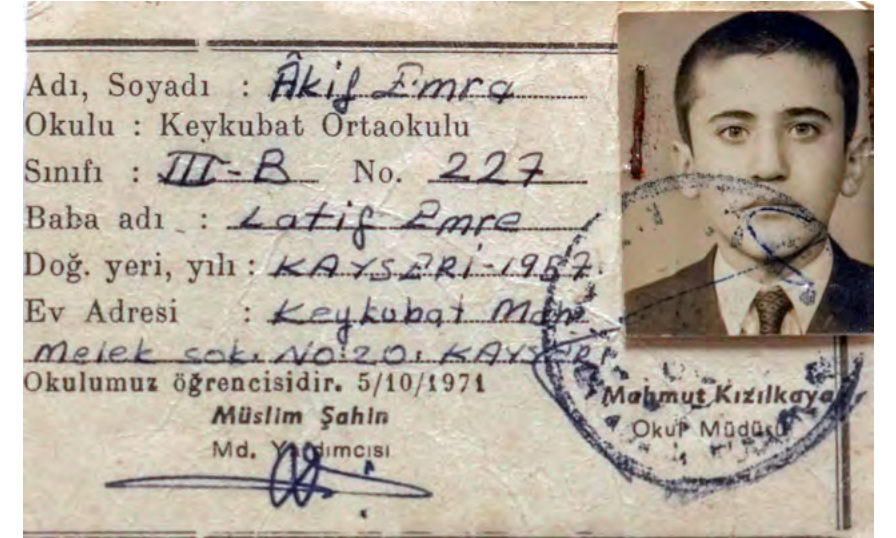 Adı, Soyadı : Âkif Emre
Okulu : Keykubat Ortaokulu
Sınıfı : III-B No. 227
Baba adı : Latif Emre
Doğ. yeri, yılı : KAYSERİ-1957.
Ev Adresi : Keykubat Mah.
Melek sok. NO:20. KAYSERİ
Okulumuz öğrencisidir. 5/10/1971
Müslim Şahin
Md. Yardımcısı
Mahmut Kızılkaya
Okul Müdürü